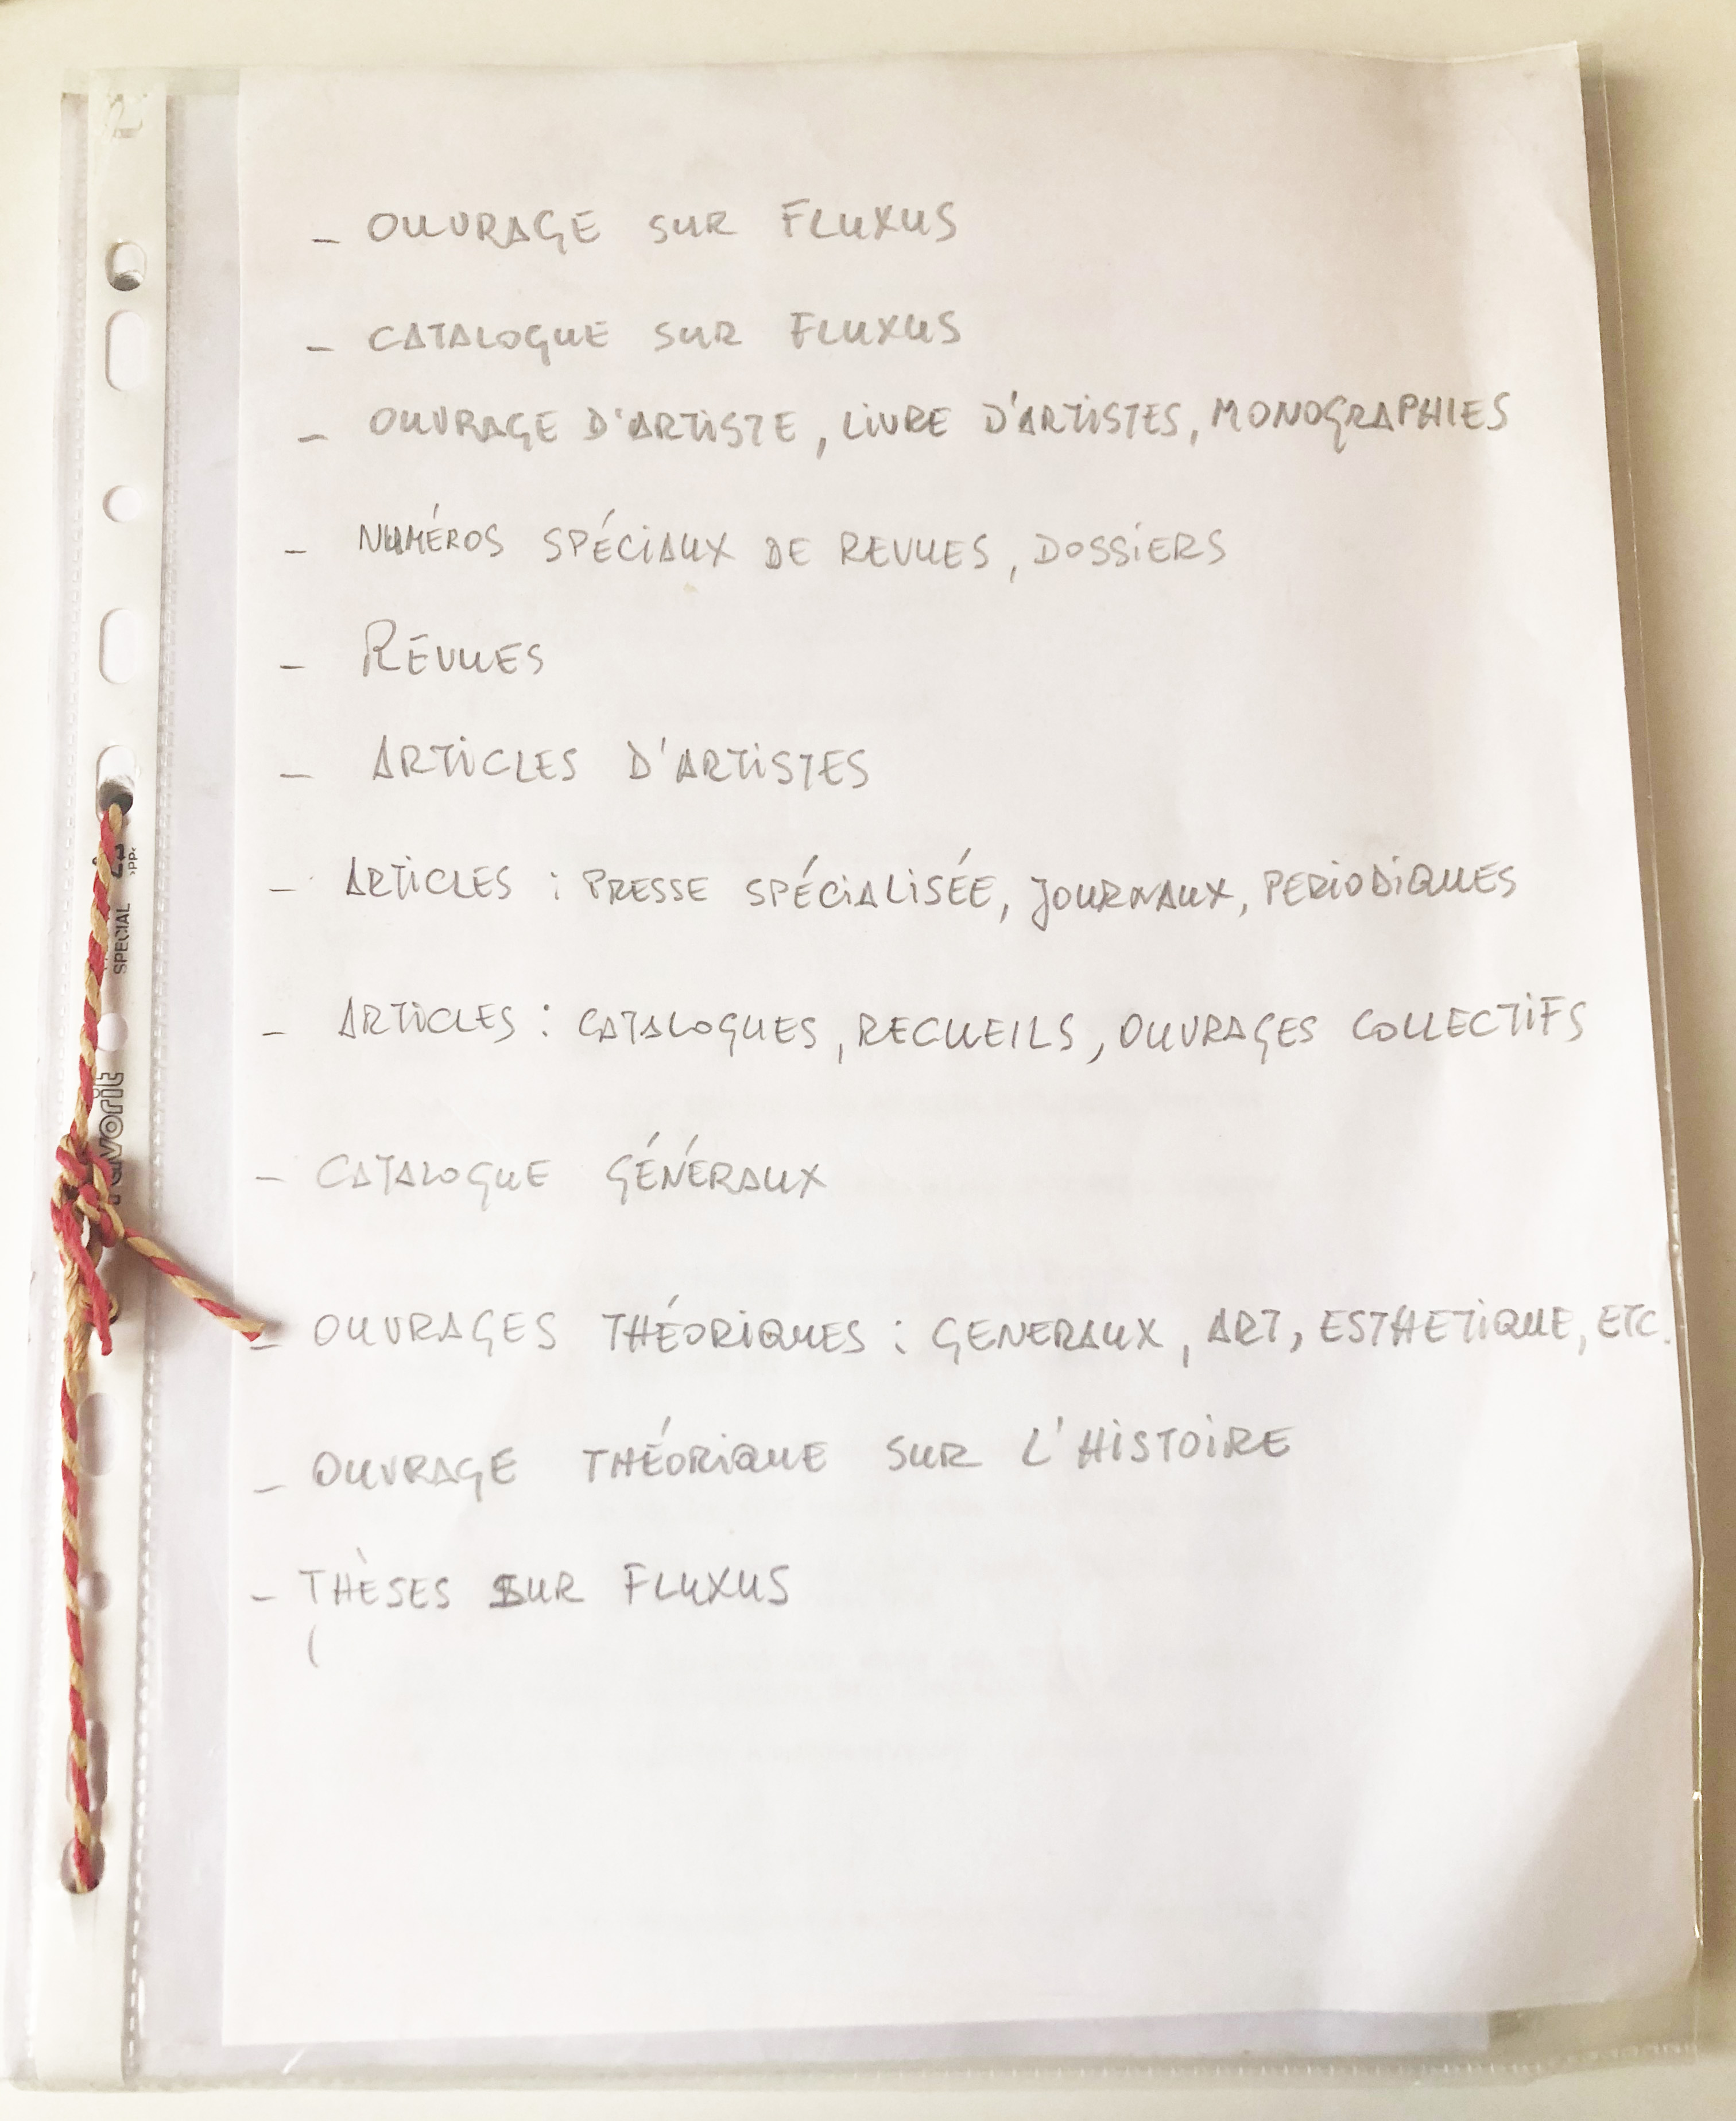 - OUVRAGE SUR FLUXUS
- CATALOGUE SUR FLUXUS
- OUVRAGE D'ARTISTE, LIVRE D'ARTISTES, MONOGRAPHIES
- NUMÉROS SPÉCIAUX DE REVUES, DOSSIERS
- REVUES
- ARTICLES D'ARTISTES
- ARTICLES : PRESSE SPÉCIALISÉE, JOURNAUX, PERIODIQUES
- ARTICLES : CATALOGUES, RECUEILS, OUVRAGES COLLECTIFS
- CATALOGUE GÉNÉRAUX
- OUVRAGES THÉORIQUES : GENERAUX, ART, ESTHETIQUE, ETC.
- OUVRAGE THÉORIQUE SUR L'HISTOIRE
- THÈSES SUR FLUXUS
(
favorit
SPECIAL
PP